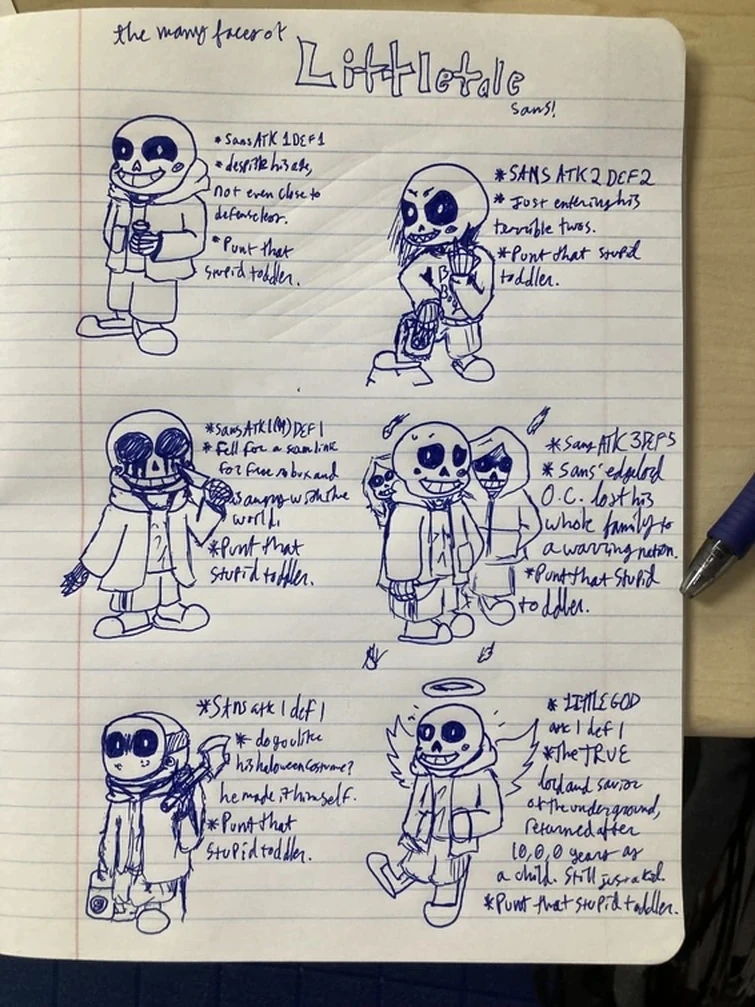 the many faces of
Littletale
sans!
*sans ATK 1 DEF 1
*despite his age,
not even close to
defenseless.
*Punt that
stupid toddler.
*SANS ATK 2 DEF 2
*Just entering his
terrible twos.
*Punt that stupid
toddler.
*sans ATK 1(14) DEF 1
*fell for a scam link
for free robux and
is angry with the
world.
*Punt that
stupid toddler.
*Sans ATK 3 DEF 5
*Sans' edgelord
O.C. lost his
whole family to
a warring nation.
*Punt that stupid
toddler.
*Sans atk 1 def 1
*do you like
his haloween costume?
he made it himself.
*Punt that
stupid toddler.
*LITTLE GOD
atk 1 def 1
*The TRUE
lord and savior
of the underground,
returned after
10,0,0 years as
a child. Still just a kid.
*Punt that stupid toddler.